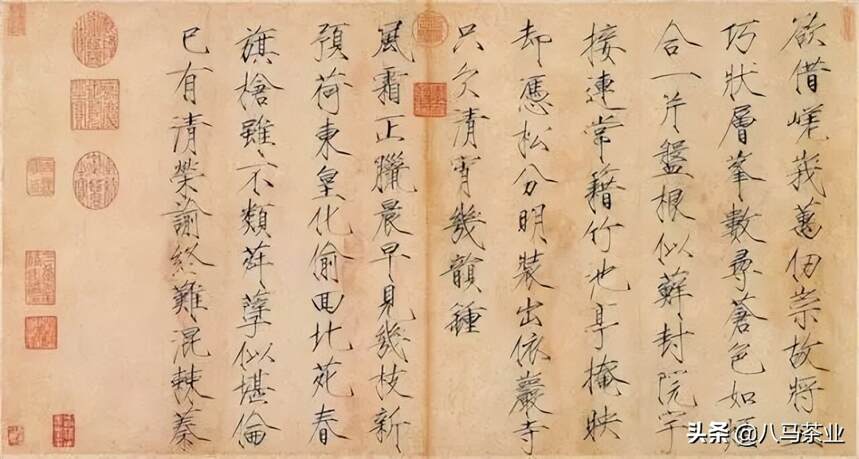 欲借嵯峩萬仞崇故將
巧狀層峯數尋蒼色如
合一片盤根似蘚封院宇
接連常籍竹池亭掩映
却憑松分明裝出依巖寺
只欠清宵幾韻鍾
風霜正臘晨早見幾枝新
預荷東皇化偷回北苑春
旗槍雖不類荈孽似堪倫
已有清榮諭終難混棘蓁
头条 @八马茶业